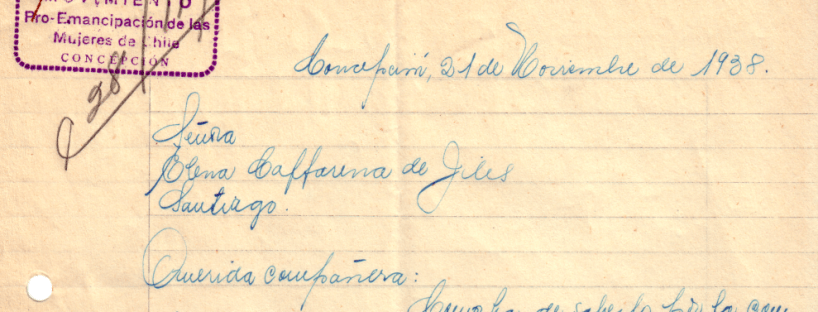 MOVIMIENTO
Pro-Emancipación de las
Mujeres de Chile
CONCEPCIÓN
Concepción, 21 de Noviembre de 1938.
Señora
Elena Caffarena de Jiles
Santiago.
Querida compañera:
Como ha de saberlo por la com